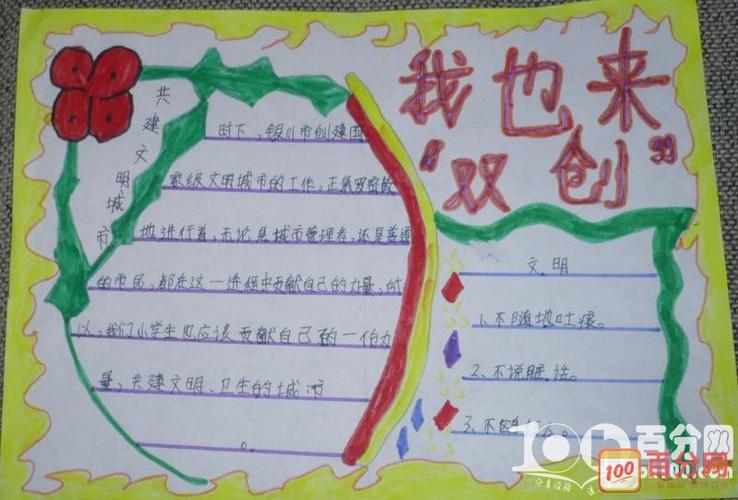 我也来
“双创”
共建文明城市
时下，银川市创建国
家级文明城市的工作，正紧密密鼓
地进行着，无论是城市管理者，还是普通
的市民，都在这一进程中贡献自己的力量，所
以，我们小学生也应该贡献自己的一份力
量，共建文明、卫生的城市
。
文明
1、不随地吐痰。
2、不说脏话。
3、不
100百分网
100
百分网